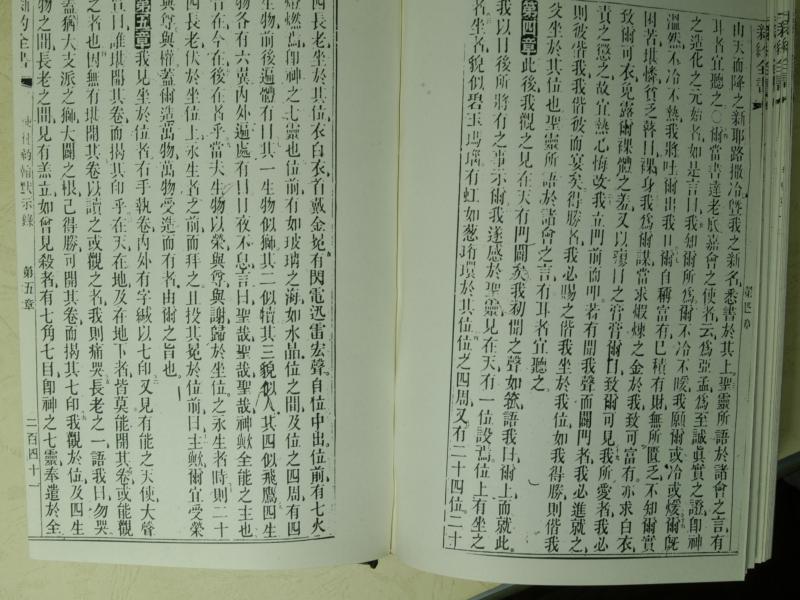 由天而降之新耶路撒冷曁我之新名悉書於其上聖靈所語於諸會之言有
耳者宜聽之○爾當書達老底嘉會之使者云爲亞孟爲至誠眞實之證卽神
之造化之元始者如是言曰我知爾所爲爾不冷不暖我願爾或冷或煖爾旣
溫然不冷不熱我將吐爾出我口爾自稱富有已積有財無所匱乏不知爾實
困苦堪憐貧乏瞽目裸身我爲爾謀當求煅煉之金於我致可富有亦求白衣
致爾可衣免露爾裸體之羞又以藥目之膏膏爾目致爾可見我所愛者我必
責之懲之故宜熱心悔改我立門前而叩若有聞我聲而闢門者我必進就之
則彼偕我我偕彼而宴矣得勝者我必賜之偕我坐於我位如我得勝則偕我
父坐於其位也聖靈所語於諸會之言有耳者宜聽之
第四章此後我觀之見在天有門闢矣我初聞之聲如號語我曰爾上而就此
我以日後所將有之事示爾我遂感於聖靈見在天有一位設焉位上有坐之
者坐者貌似碧玉瑪瑙有虹如葱珩環於其位位之四周又有二十四位二十
四長老坐於其位衣白衣首戴金冕有閃電迅雷宏聲自位中出位前有七火
燈燃焉卽神之七靈也位前有如玻璃之海如水晶位之間及位之四周有四
生物前後遍體有目其一生物似獅其二似犢其三貌似人其四似飛鷹四生
物各有六翼內外遍處有目日夜不息言曰聖哉聖哉聖哉神歟全能之主也
昔在今在後在者乎當夫生物以榮與尊與謝歸於坐位之永生者時則二十
四長老伏於坐位上永生者之前而拜之且投其冕於位前曰主歟爾宜受榮
與尊與權蓋爾造萬物萬物受造而有者由爾之旨也
第五章我見坐於位者右手執卷內外有字緘以七印又見有能之天使大聲
宣曰誰堪開其卷而揭其印乎在天在地及在地下者皆莫能開其卷或能觀
之者也因無有堪開其卷以讀之或觀之者我則痛哭長老之一語我曰勿哭
蓋猶大支派之獅大闢之根已得勝可開其卷而揭其七印我觀於位及四生
物之間長老之間見有羔立如曾見殺者有七角七目卽神之七靈奉遣於全
新約全書
約翰默示錄
第五章
二百四十一